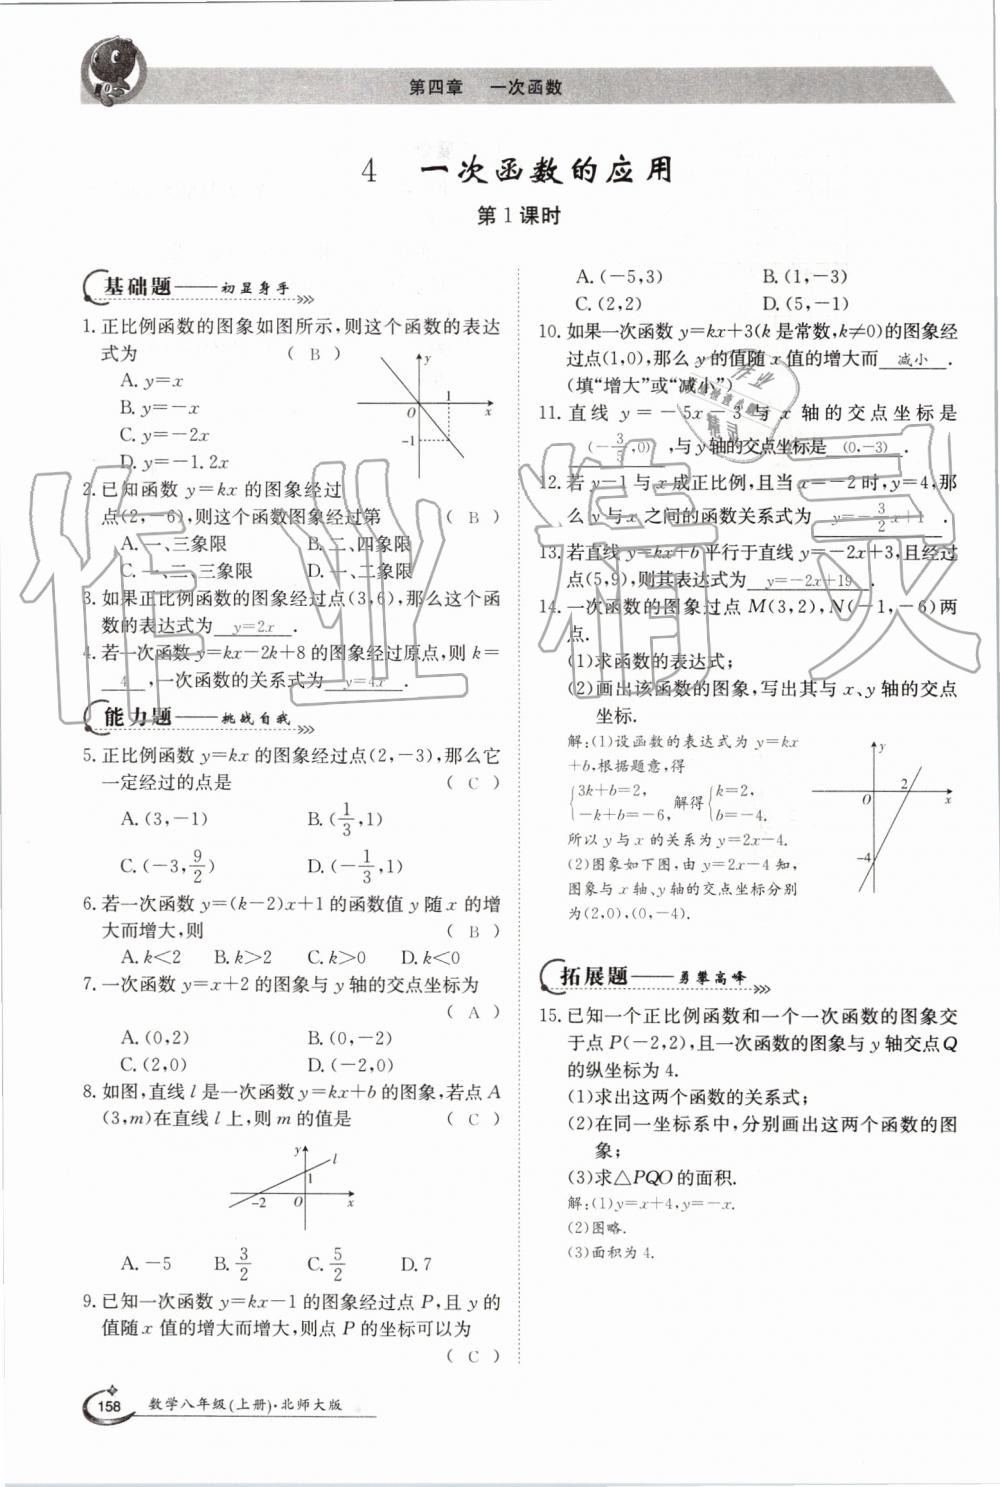 第四章 一次函数
4 一次函数的应用
第1课时
基础题——初显身手
1. 正比例函数的图象如图所示,则这个函数的表达
式为 ( B )
A. y=x
B. y=-x
C. y=-2x
D. y=-1.2x
y
1
O
x
-1
2. 已知函数 y=kx 的图象经过
点(2,-6),则这个函数图象经过第 ( B )
A. 一、三象限 B. 二、四象限
C. 一、二、三象限 D. 一、二象限
3. 如果正比例函数的图象经过点(3,6),那么这个函
数的表达式为 y=2x .
4. 若一次函数 y=kx-2k+8 的图象经过原点,则 k=
4 ,一次函数的关系式为 y=4x .
能力题——挑战自我
5. 正比例函数 y=kx 的图象经过点(2,-3),那么它
一定经过的点是 ( C )
A. (3,-1) B. (1/3,1)
C. (-3,9/2) D. (-1/3,1)
6. 若一次函数 y=(k-2)x+1 的函数值 y 随 x 的增
大而增大,则 ( B )
A. k<2 B. k>2 C. k>0 D. k<0
7. 一次函数 y=x+2 的图象与 y 轴的交点坐标为
( A )
A. (0,2) B. (0,-2)
C. (2,0) D. (-2,0)
8. 如图,直线 l 是一次函数 y=kx+b 的图象,若点 A
(3,m)在直线 l 上,则 m 的值是 ( C )
y
l
1
-2 O x
A. -5 B. 3/2 C. 5/2 D. 7
9. 已知一次函数 y=kx-1 的图象经过点 P,且 y 的
值随 x 值的增大而增大,则点 P 的坐标可以为
( C )
A. (-5,3) B. (1,-3)
C. (2,2) D. (5,-1)
10. 如果一次函数 y=kx+3(k 是常数,k≠0)的图象经
过点(1,0),那么 y 的值随 x 值的增大而 减小 .
(填“增大”或“减小”)
11. 直线 y=-5x-3 与 x 轴的交点坐标是
(-3/5,0) ,与 y 轴的交点坐标是 (0,-3) .
12. 若 y-1 与 x 成正比例,且当 x=-2 时,y=4,那
么 y 与 x 之间的函数关系式为 y=-3/2x+1 .
13. 若直线 y=kx+b 平行于直线 y=-2x+3,且经过
点(5,9),则其表达式为 y=-2x+19 .
14. 一次函数的图象过点 M(3,2),N(-1,-6)两
点.
(1)求函数的表达式;
(2)画出该函数的图象,写出其与 x、y 轴的交点
坐标.
解:(1)设函数的表达式为 y=kx
+b,根据题意,得
{3k+b=2, -k+b=-6, 解得 {k=2, b=-4.
所以 y 与 x 的关系为 y=2x-4.
(2)图象如下图,由 y=2x-4 知,
图象与 x 轴、y 轴的交点坐标分别
为(2,0),(0,-4).
y
2
O x
-4
拓展题——勇攀高峰
15. 已知一个正比例函数和一个一次函数的图象交
于点 P(-2,2),且一次函数的图象与 y 轴交点 Q
的纵坐标为 4.
(1)求出这两个函数的关系式;
(2)在同一坐标系中,分别画出这两个函数的图
象;
(3)求△PQO 的面积.
解:(1)y=x+4,y=-x.
(2)图略.
(3)面积为 4.
158 数学八年级(上册)·北师大版
作业精灵